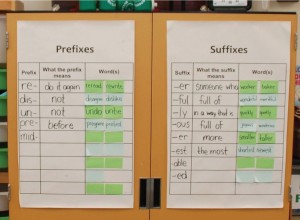 Prefixes
Prefix What the prefix means Word(s)
re- do it again reread rewrite
dis- not disagree dislike
un- not undo untie
pre- before pregame pretest
mid-
Suffixes
Suffix What the suffix means Word(s)
-er someone who worker
-ful full of wonderful
-ly in a way that is quickly
-ous full of joyous
-er more smaller
-est the most shortest newest
-able
-ed